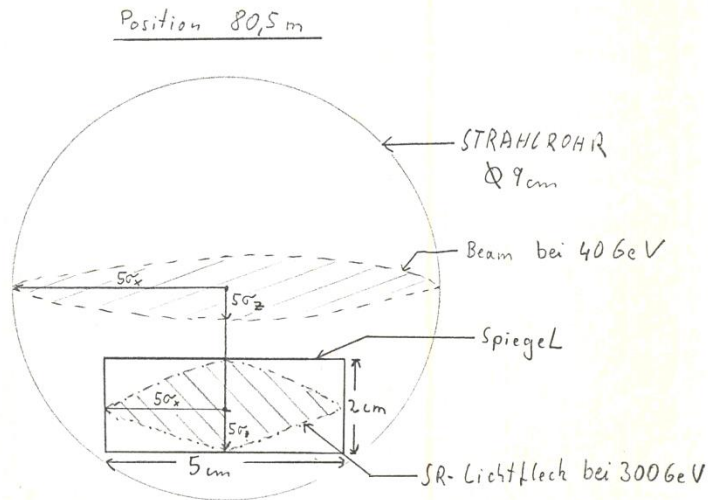 Position 80,5 m
STRAHLROHR
Ø 9 cm
Beam bei 40 GeV
5σx
5σz
Spiegel
5σx
5σz
2 cm
5 cm
SR-Lichtfleck bei 300 GeV